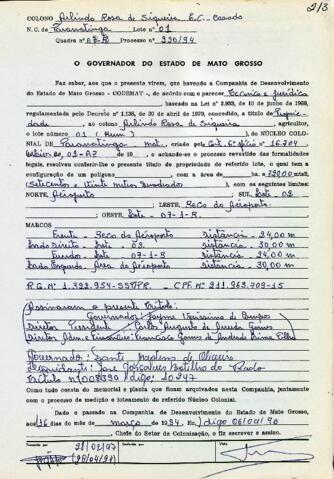 2/3
COLONO Arlindo Rosa de Siqueira E.C. Casado
N. C. de Paranatinga Lote n.º 01
Quadra n.º 07-B Processo n.º 290/94
O GOVERNADOR DO ESTADO DE MATO GROSSO
Faz saber, aos que o presente virem, que havendo a Companhia de Desenvolvimento
do Estado de Mato Grosso - CODEMAT -, de acordo com o parecer Técnico e Jurídico
, baseado na Lei n.º 2.933, de 10 de junho de 1969,
regulamentado pelo Decreto n.º 1.138, de 30 de abril de 1970, concedido o título de
dade, ao colono Arlindo Rosa de Siqueira, agricultor,
o lote número 01 (Hum), do NÚCLEO COLO-
NIAL DE Paranatinga mat. criado pelo 16.704
02-AZ de 19 , e achando-se o processo revestido das formalidades
legais, resolveu conferir-lhe o presente título de propriedade do referido lote, o qual tem a
configuração de um polígono com a área de ha. 720,00 mts²
(Setecentos e Vinte metros quadrados), com os seguintes limites:
NORTE, Aéroporto SUL, Lote 02
; LESTE, Beco do Aéroporto
; OESTE, Lote - 07-1-B.
MARCOS
Frente - Beco do Aéroporto distância - 24,00 m
Lado Direito - Lote - 02. distância - 30,00 m
Fundo - Lote - 07-1-B distância - 24,00 m
Lado Esquerdo - Área do Aéroporto distância - 30,00 m
R.G. Nº 1.392.954-SSP/PR. CPF. Nº 211.963.709-15
Assinaram o presente título:
Governador: Jayme Veríssimo de Campos
Diretor Presidente Carlos Augusto de Arruda Gomes
Diretor Adm. e Financeiro: Francisco Gomes de Andrade Lima Filho
Governador: Dante Martins de Oliveira
José Gonçalves Botelho do Prado
Título nº 008390 Código: 10247
Como tudo consta do memorial e planta que ficam arquivados nesta Companhia, juntamente
com o processo de medição e loteamento do referido Núcleo Colonial.
Dado e passado na Companhia de Desenvolvimento do Estado de Mato Grosso,
aos 16 dias do mês de março de 1994. Eu, Código 0604190
Chefe do Setor de Colonização, o fiz escrever e assino.
28/02/97
(28/04/97)
Visto